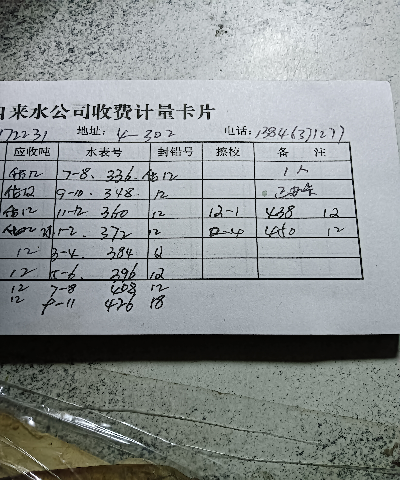 来水公司收费计量卡片
172231 地址: 4-302 电话:
应收吨 水表号 封铅号 换校 备 注
估12 7-8. 336. 估12 1人
估12 9-10. 348. 12
估12 11-12 360 12 12-1 438 12
1-2. 372 12 450 12
12 3-4. 384
12 5-6. 396 12
12 7-8 408 12
12 9-11 426 18